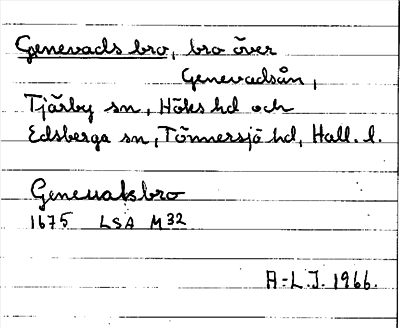 Genevads bro, bro över
Genevadsån,
Tjärby sn, Höks hd och
Edsberga sn, Tönnersjö hd, Hall. l.
Geneuaksbro
1675 LSA M32
A-L.J. 1966.